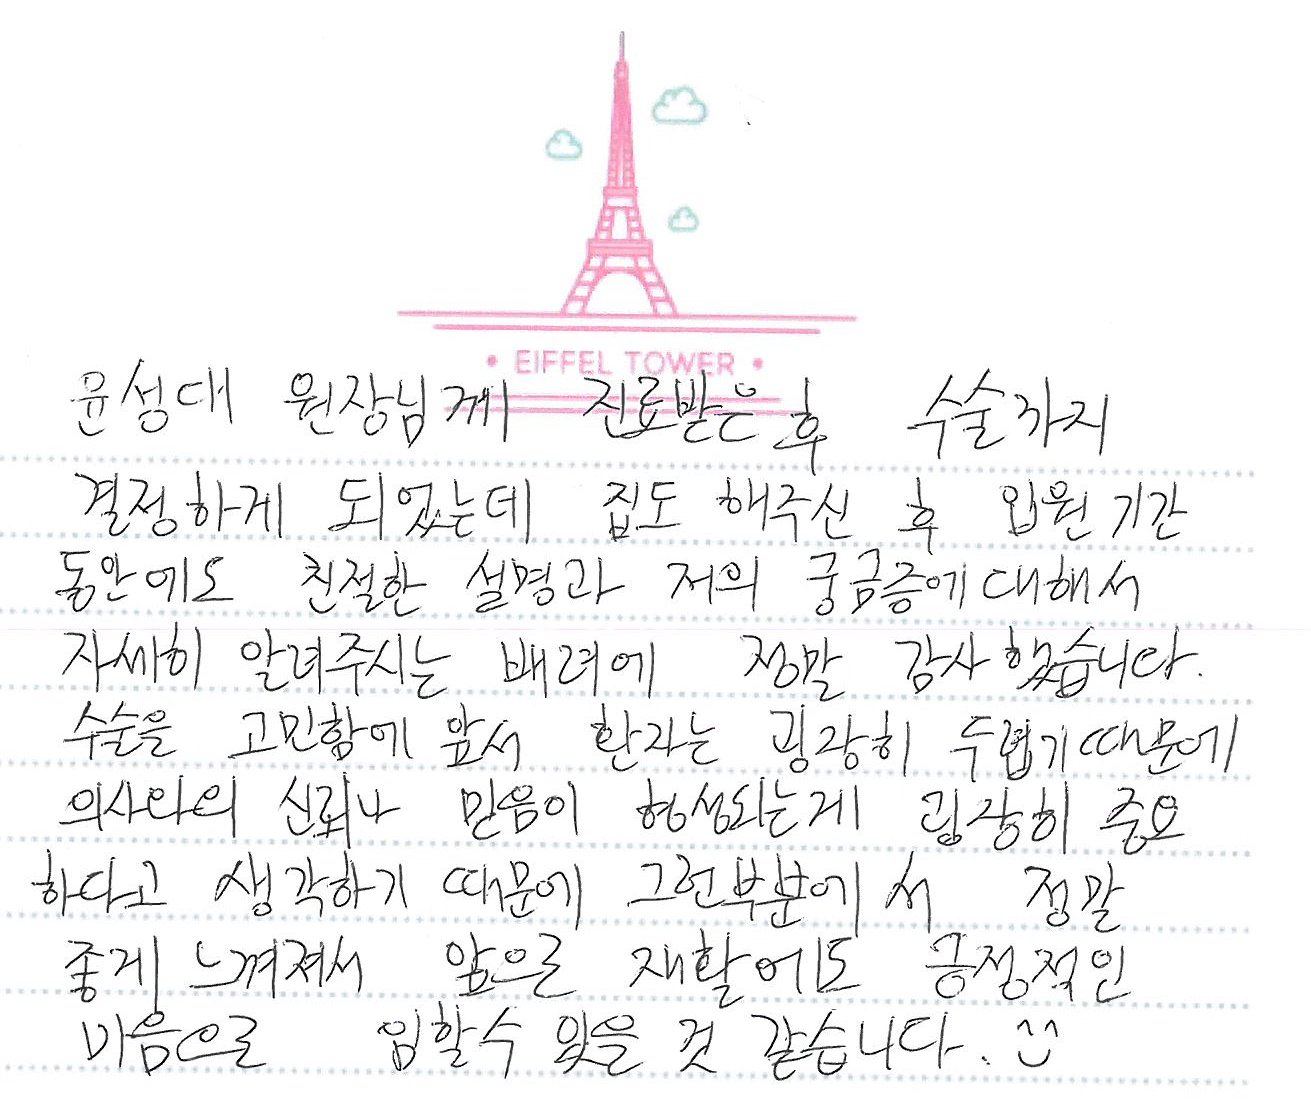 • EIFFEL TOWER •
윤성대 원장님께 진료받은 후 수술까지
결정하게 되었는데 집도 해주신 후 입원 기간
동안에도 친절한 설명과 저의 궁금증에 대해서
자세히 알려주시는 배려에 정말 감사했습니다.
수술을 고민함에 앞서 환자는 굉장히 두렵기때문에
의사와의 신뢰나 믿음이 형성되는게 굉장히 중요
하다고 생각하기 때문에 그런부분에서 정말
좋게 느껴져서 앞으로 재활에도 긍정적인
마음으로 임할수 있을 것 같습니다.